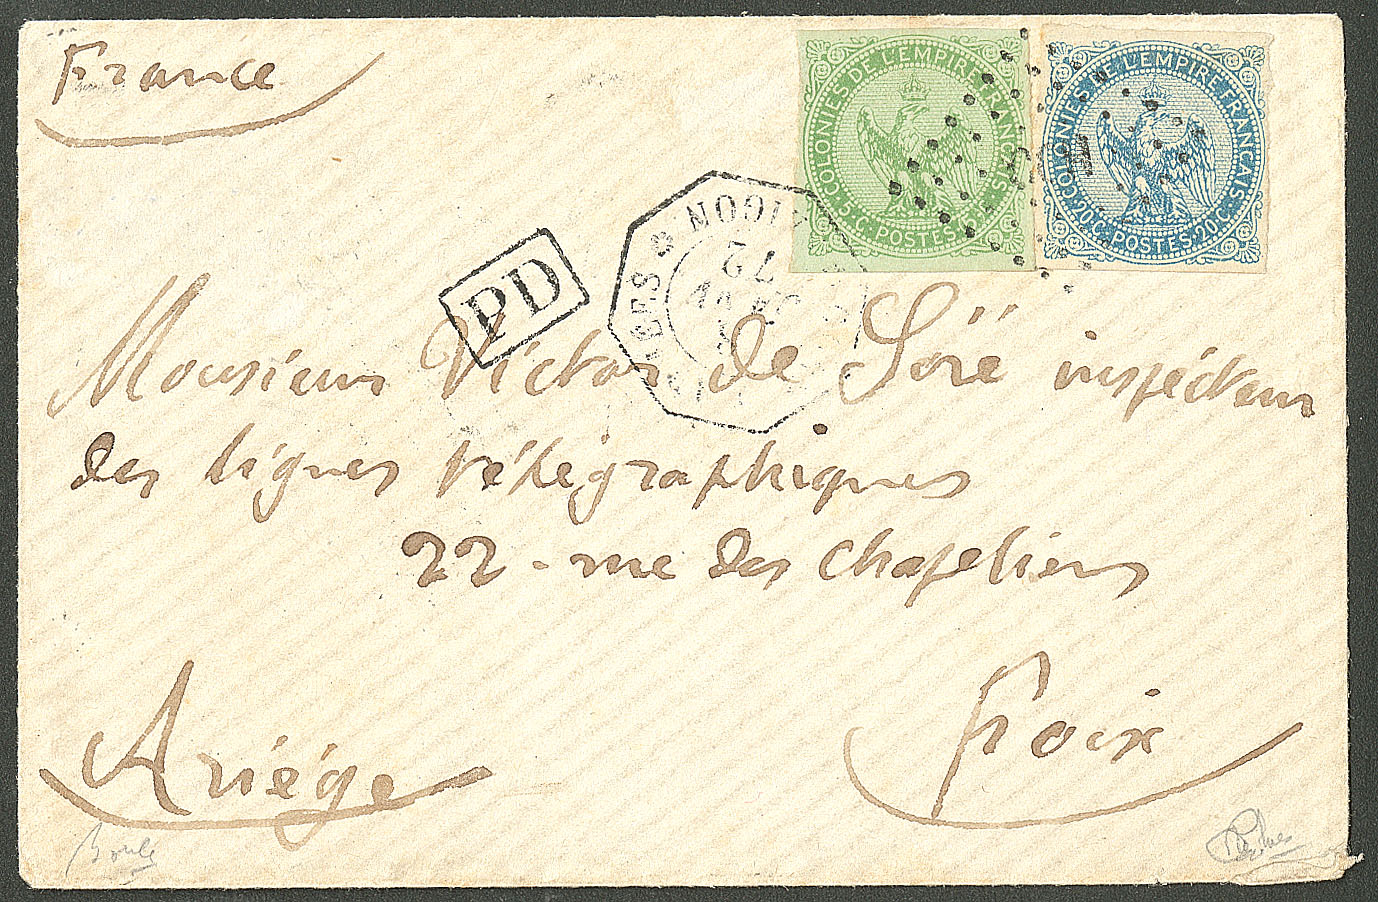 France
COLONIES DE L'EMPIRE FRANÇAIS
5 C. POSTES 5 C.
COLONIES DE L'EMPIRE FRANÇAIS
20C. POSTES 20C.
PD
72
Monsieur Victor de Soïé inspécteur
des lignes télégraphiques
22 - rue des Chapeliers
Foix
Ariége
Boule